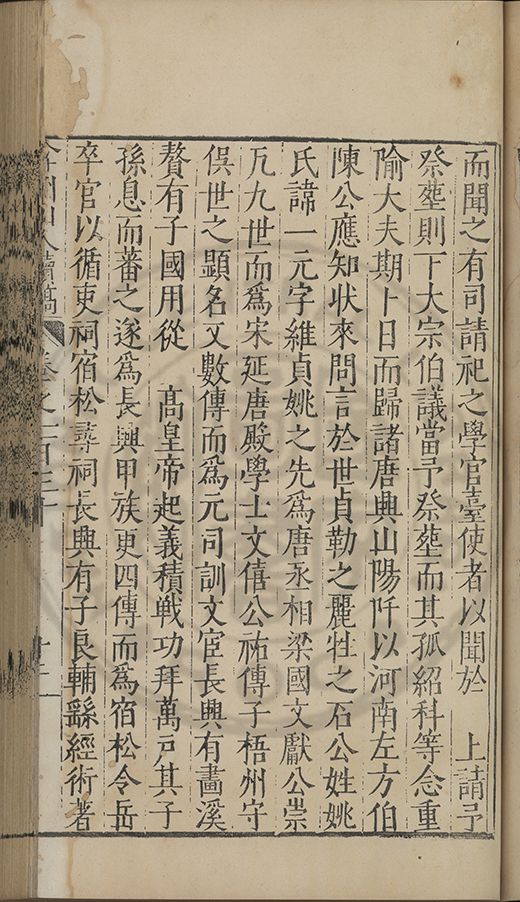 而聞之有司請祀之學官臺使者以聞於　上請予
祭塟則下大宗伯議當予祭塟而其孤紹科等念重
隃大夫期卜日而歸諸唐興山陽阡以河南左方伯
陳公應知狀來問言於世貞勒之麗牲之石公姓姚
氏諱一元字維貞姚之先爲唐丞相梁國文獻公崇
凡九世而爲宋延唐殿學士文僖公祐傳子梧州守
俁世之顯名又數傳而爲元司訓文宦長興有畫溪
贅有子國用從　高皇帝起義積戰功拜萬戶其子
孫息而蕃之遂爲長興甲族更四傳而爲宿松令岳
卒官以循吏祠宿松尋祠長興有子良輔繇經術著
弇州山人續稿　卷之一百三十　十二